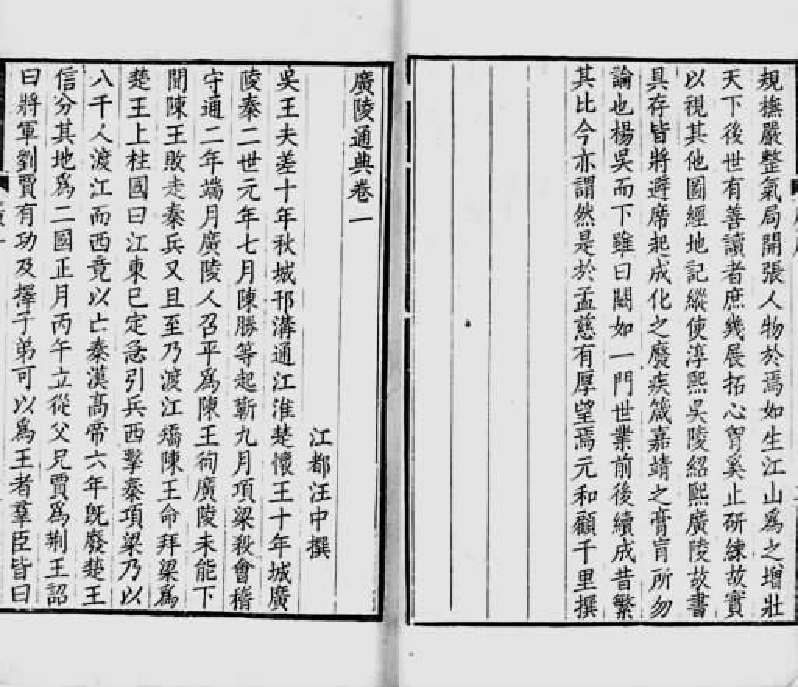 規橅嚴整氣局開張人物於焉如生江山爲之增壯
天下後世有善讀者庶幾展拓心胷奚止硏練故實
以視其他圖經地記縱使淳熙吳陵紹熙廣陵故書
具存皆將避席起成化之廢疾箴嘉靖之膏肓所勿
論也楊吳而下雖曰闕如一門世業前後續成昔繁
其比今亦謂然是於孟慈有厚望焉元和顧千里撰
廣陵通典卷一
江都汪中撰
吳王夫差十年秋城邗溝通江淮楚懷王十年城廣
陵秦二世元年七月陳勝等起蘄九月項梁殺會稽
守通二年端月廣陵人召平爲陳王徇廣陵未能下
聞陳王敗走秦兵又且至乃渡江矯陳王命拜梁爲
楚王上柱國曰江東已定急引兵西擊秦項梁乃以
八千人渡江而西竟以亡秦漢高帝六年旣廢楚王
信分其地爲二國正月丙午立從父兄賈爲荆王詔
曰將軍劉賈有功及擇子弟可以爲王者羣臣皆曰